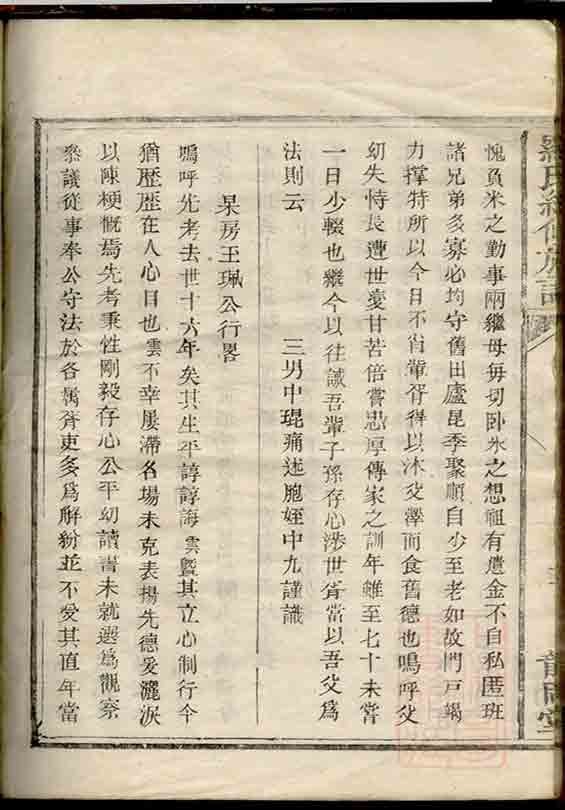 愧負米之勤事兩繼母每切卧氷之想祖有遺金不自私匿班
諸兄弟多寡必均守舊田廬昆季聚順自少至老如故門戸竭
力撑持所以今日不肖輩胥得以沐父澤而食舊德也嗚呼父
幼失恃長遭世憂甘苦倍嘗忠厚傳家之訓年雖至七十未嘗
一日少輟也繼今以往誡吾輩子孫存心渉世胥當以吾父爲
法則云
三男中琨痛述胞姪中九謹識
杲房王珮公行畧
嗚呼先考去世十六年矣其生平諄諄誨雲暨其立心制行今
猶歴歴在人心目也雲不幸屢滯名塲未克表揚先德爰灑淚
以陳梗慨焉先考秉性剛毅存心公平幼讀書未就選爲觀察
叅議從事奉公守法於各屬胥吏多爲解紛並不愛其值年當